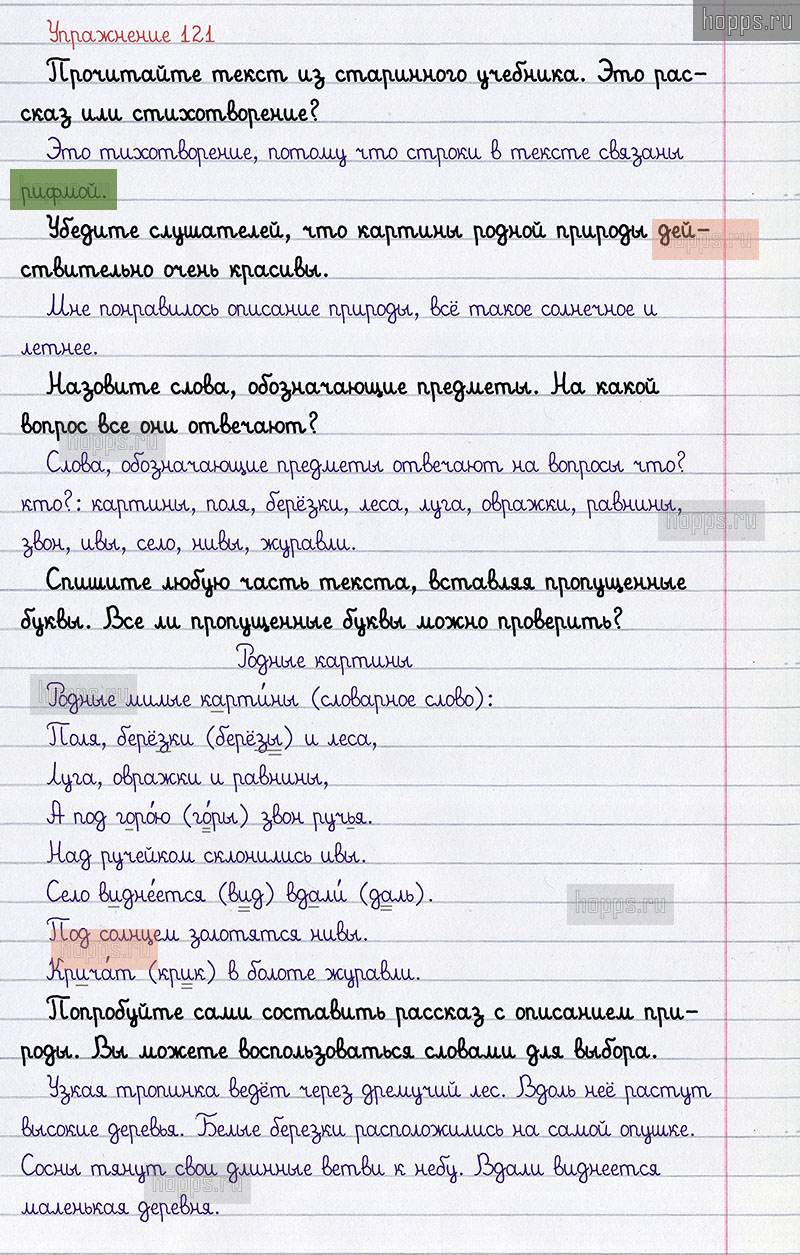 hopps.ru
Упражнение 121
Прочитайте текст из старинного учебника. Это рас-
сказ или стихотворение?
Это тихотворение, потому что строки в тексте связаны
рифмой.
Убедите слушателей, что картины родной природы дей-
hopps.ru
ствительно очень красивы.
Мне понравилось описание природы, всё такое солнечное и
летнее.
Назовите слова, обозначающие предметы. На какой
вопрос все они отвечают?
hopps.ru
Слова, обозначающие предметы отвечают на вопросы что?
кто?: картины, поля, берёзки, леса, луга, овражки, равнины,
hopps.ru
звон, ивы, село, нивы, журавли.
Спишите любую часть текста, вставляя пропущенные
буквы. Все ли пропущенные буквы можно проверить?
Родные картины
hopps.ru
Родные милые карти́ны (словарное слово):
Поля, берёзки (берёзы) и леса,
Луга, овражки и равнины,
А под горо́ю (го́ры) звон ручья.
Над ручейком склонились ивы.
Село видне́ется (вид) вдали́ (даль).
hopps.ru
Под солнцем золотятся нивы.
hopps.ru
Крича́т (крик) в болоте журавли.
Попробуйте сами составить рассказ с описанием при-
роды. Вы можете воспользоваться словами для выбора.
Узкая тропинка ведёт через дремучий лес. Вдоль неё растут
высокие деревья. Белые березки расположились на самой опушке.
Сосны тянут свои длинные ветви к небу. Вдали виднеется
hopps.ru
маленькая деревня.